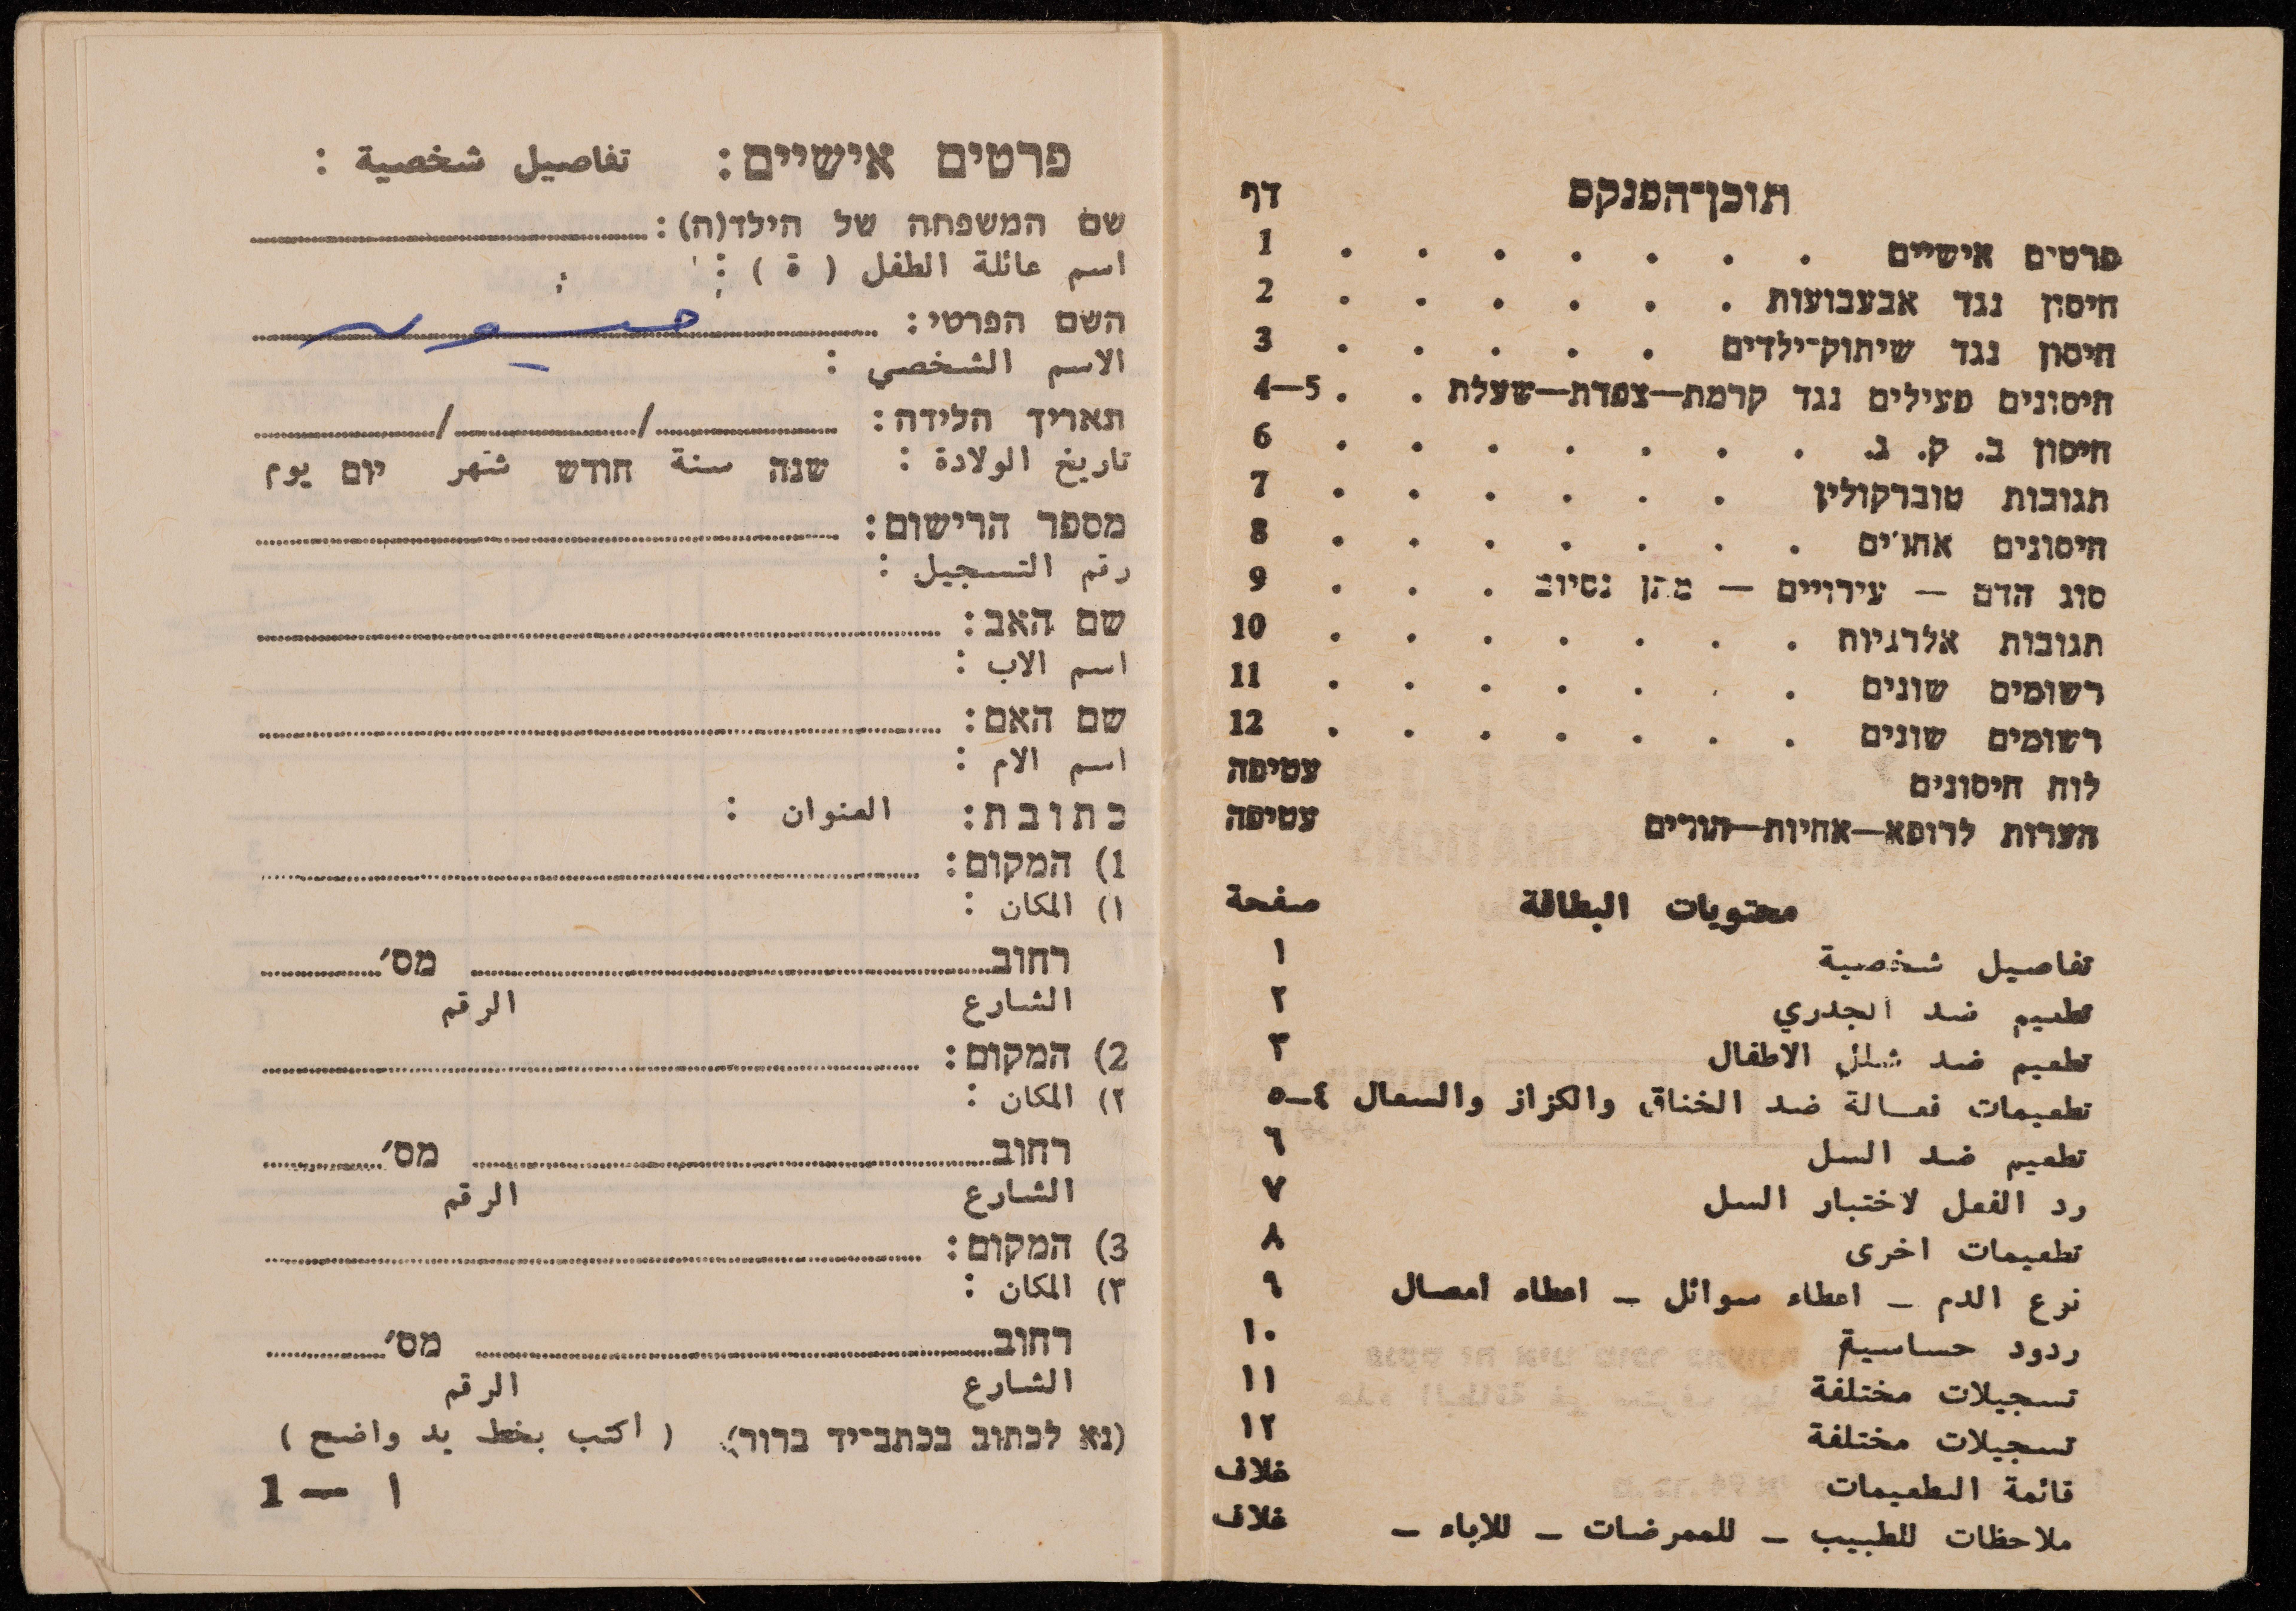 תוכן־הפנקס דף
פרטים אישיים . . . . . . . 1
חיסון נגד אבעבועות . . . . . . 2
חיסון נגד שיתוק־ילדים . . . . . 3
חיסונים פעילים נגד קרמת—צפדת—שעלת . . 4—5
חיסון ב. ק. ג. . . . . . . . 6
תגובות טוברקולין . . . . . . 7
חיסונים אחרים . . . . . . . 8
סוג הדם — עירויים — מתן נסיוב . . . 9
תגובות אלרגיות . . . . . . . 10
רשומים שונים . . . . . . . 11
רשומים שונים . . . . . . . 12
לוח חיסונים עטיפה
הערות לרופא—אחיות—הורים עטיפה
محتويات البطاقة صفحة
تفاصيل شخصية ١
تطعيم ضد الجدري ٢
تطعيم ضد شلل الاطفال ٣
تطعيمات فعالة ضد الخناق والكزاز والسعال ٤—٥
تطعيم ضد السل ٦
رد الفعل لاختبار السل ٧
تطعيمات اخرى ٨
نوع الدم — اعطاء سوائل — اعطاء امصال ٩
ردود حساسية ١٠
تسجيلات مختلفة ١١
تسجيلات مختلفة ١٢
قائمة التطعيمات غلاف
ملاحظات للطبيب — للممرضات — للاباء — غلاف
פרטים אישיים: تفاصيل شخصية :
שם המשפחה של הילד(ה):
اسم عائلة الطفل ( ة ) :
השם הפרטי:
الاسم الشخصي :
תאריך הלידה: / /
تاريخ الولادة : שנה سنة חודש شهر יום يوم
מספר הרישום:
رقم التسجيل :
שם האב:
اسم الاب :
שם האם:
اسم الام :
כתובת: العنوان :
1) המקום:
١) المكان :
רחוב מס׳
الشارع الرقم
2) המקום:
٢) المكان :
רחוב מס׳
الشارع الرقم
3) המקום:
٣) المكان :
רחוב מס׳
الشارع الرقم
(נא לכתוב בכתב־יד ברור) ( اكتب بخط يد واضح )
١ — 1